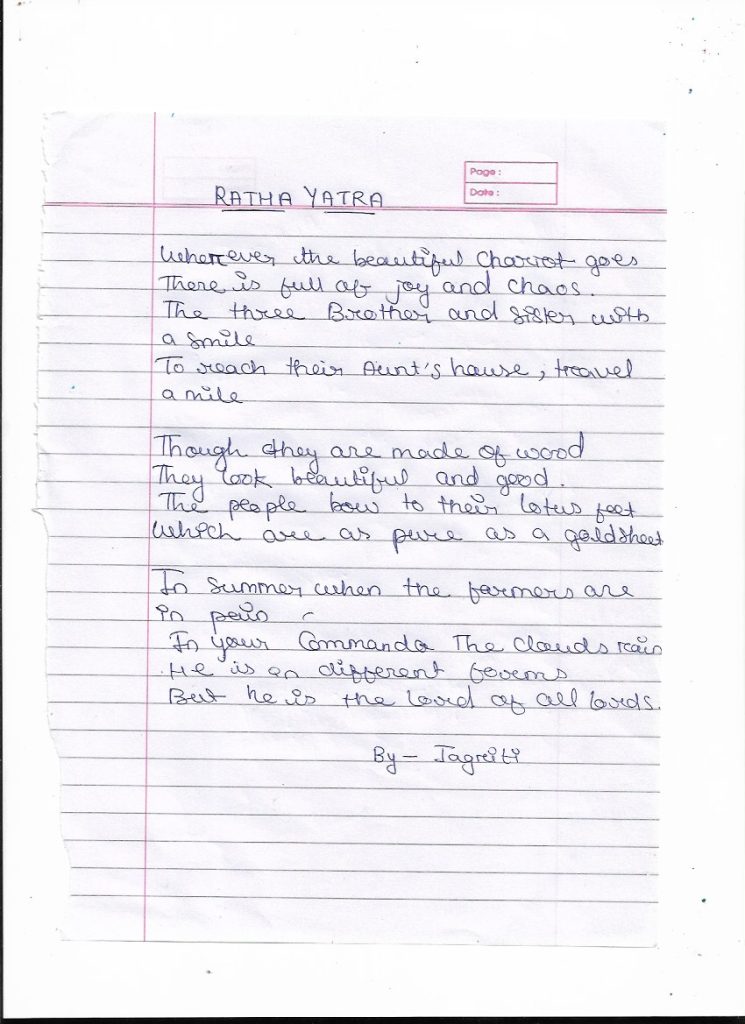 Page :
Date :
RATHA YATRA
Wherever the beautiful Chariot goes
There is full of joy and chaos.
The three Brother and Sister with
a smile
To reach their Aunt's house, travel
a mile
Though they are made of wood
They look beautiful and good.
The people bow to their lotus feet
which are as pure as a goldsheet
In Summer when the farmers are
in pein
In your Commanda The Clouds rain
He is en different forems
But he is the lord of all lords.
By - Jagriti